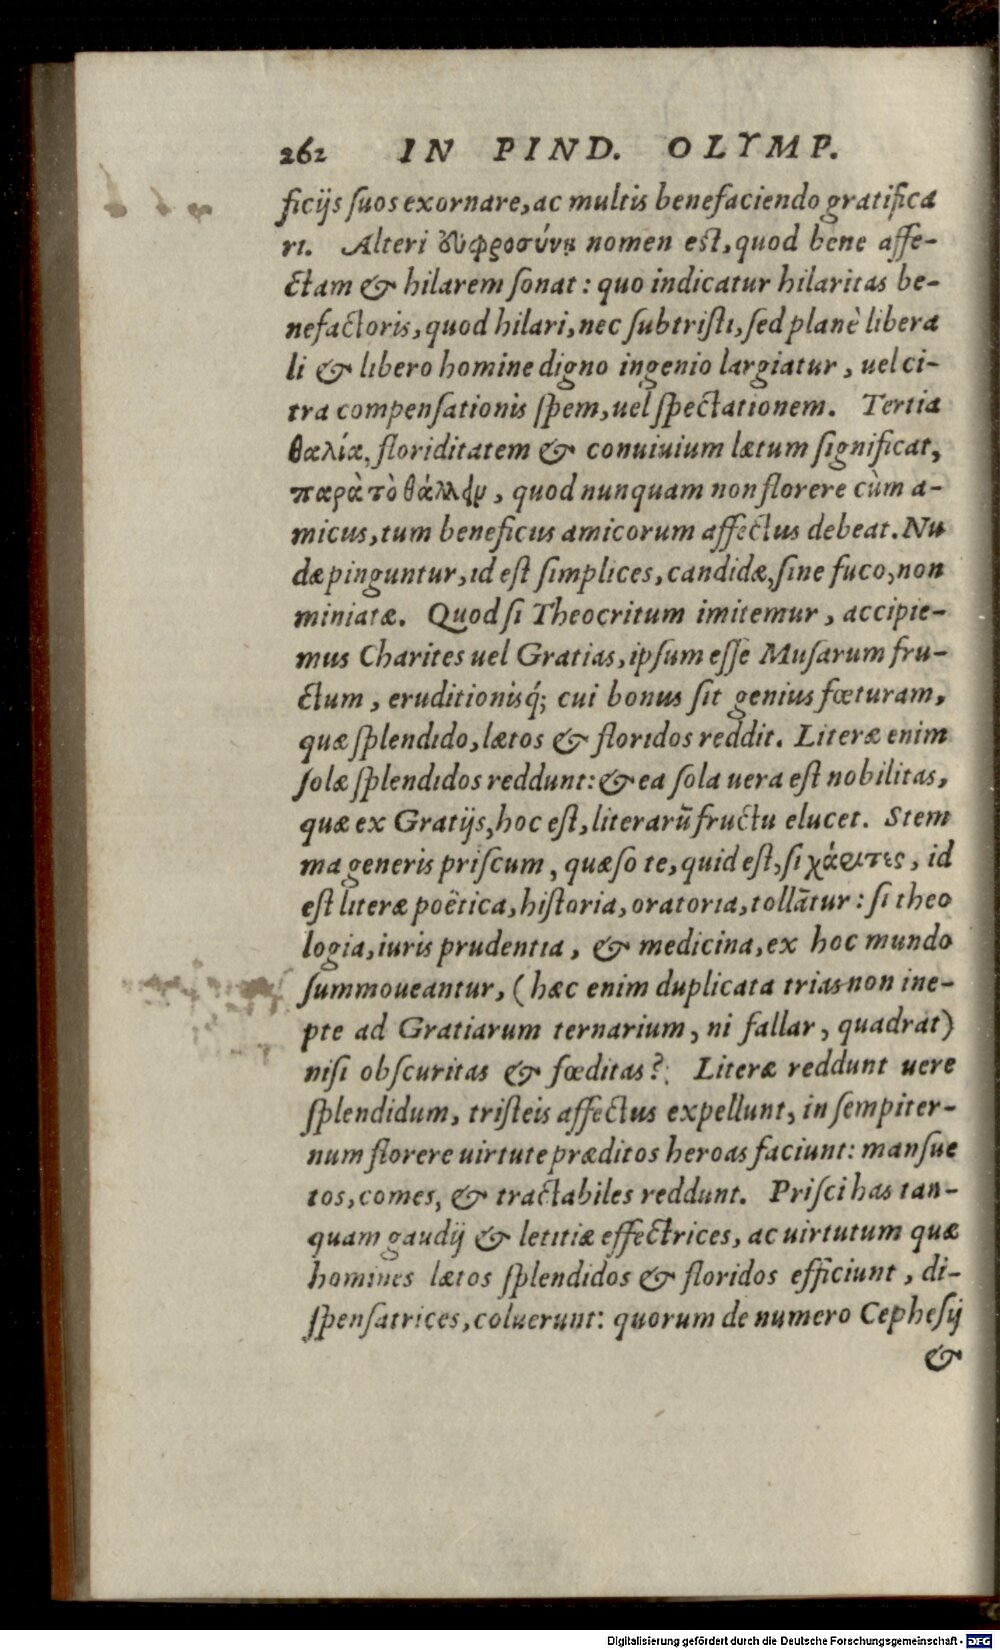 262 IN PIND. OLYMP.
ficijs ſuos exornare, ac multis benefaciendo gratifica
ri. Alteri ἐυφροσύνη nomen eſt, quod bene affe-
ctam & hilarem ſonat: quo indicatur hilaritas be-
nefactoris, quod hilari, nec ſubtriſti, ſed planè libera
li & libero homine digno ingenio largiatur, uel ci-
tra compenſationis ſpem, uel ſpectationem. Tertia
θαλία, floriditatem & conuiuium lætum ſignificat,
παρὰ τὸ θάλλειν, quod nunquam non florere cùm a-
micus, tum beneficus amicorum affectus debeat. Nu
dæ pinguntur, id eſt ſimplices, candidæ, ſine fuco, non
miniatæ. Quod ſi Theocritum imitemur, accipie-
mus Charites uel Gratias, ipſum eſſe Muſarum fru-
ctum, eruditionisq́; cui bonus ſit genius fœturam,
quæ ſplendido, lætos & floridos reddit. Literæ enim
ſolæ ſplendidos reddunt: & ea ſola uera eſt nobilitas,
quæ ex Gratijs, hoc eſt, literarũ fructu elucet. Stem
ma generis priſcum, quæſo te, quid eſt, ſi χάριτες, id
eſt literæ poëtica, hiſtoria, oratoria, tollãtur: ſi theo
logia, iuris prudentia, & medicina, ex hoc mundo
ſummoueantur, (hæc enim duplicata trias non ine-
pte ad Gratiarum ternarium, ni fallar, quadrat)
niſi obſcuritas & fœditas? Literæ reddunt uere
ſplendidum, triſteis affectus expellunt, in ſempiter-
num florere uirtute præditos heroas faciunt: manſue
tos, comes, & tractabiles reddunt. Priſci has tan-
quam gaudij & letitiæ effectrices, ac uirtutum quæ
homines lætos ſplendidos & floridos efficiunt, di-
ſpenſatrices, coluerunt: quorum de numero Cepheſij
&
Digitalisierung gefördert durch die Deutsche Forschungsgemeinschaft - DFG